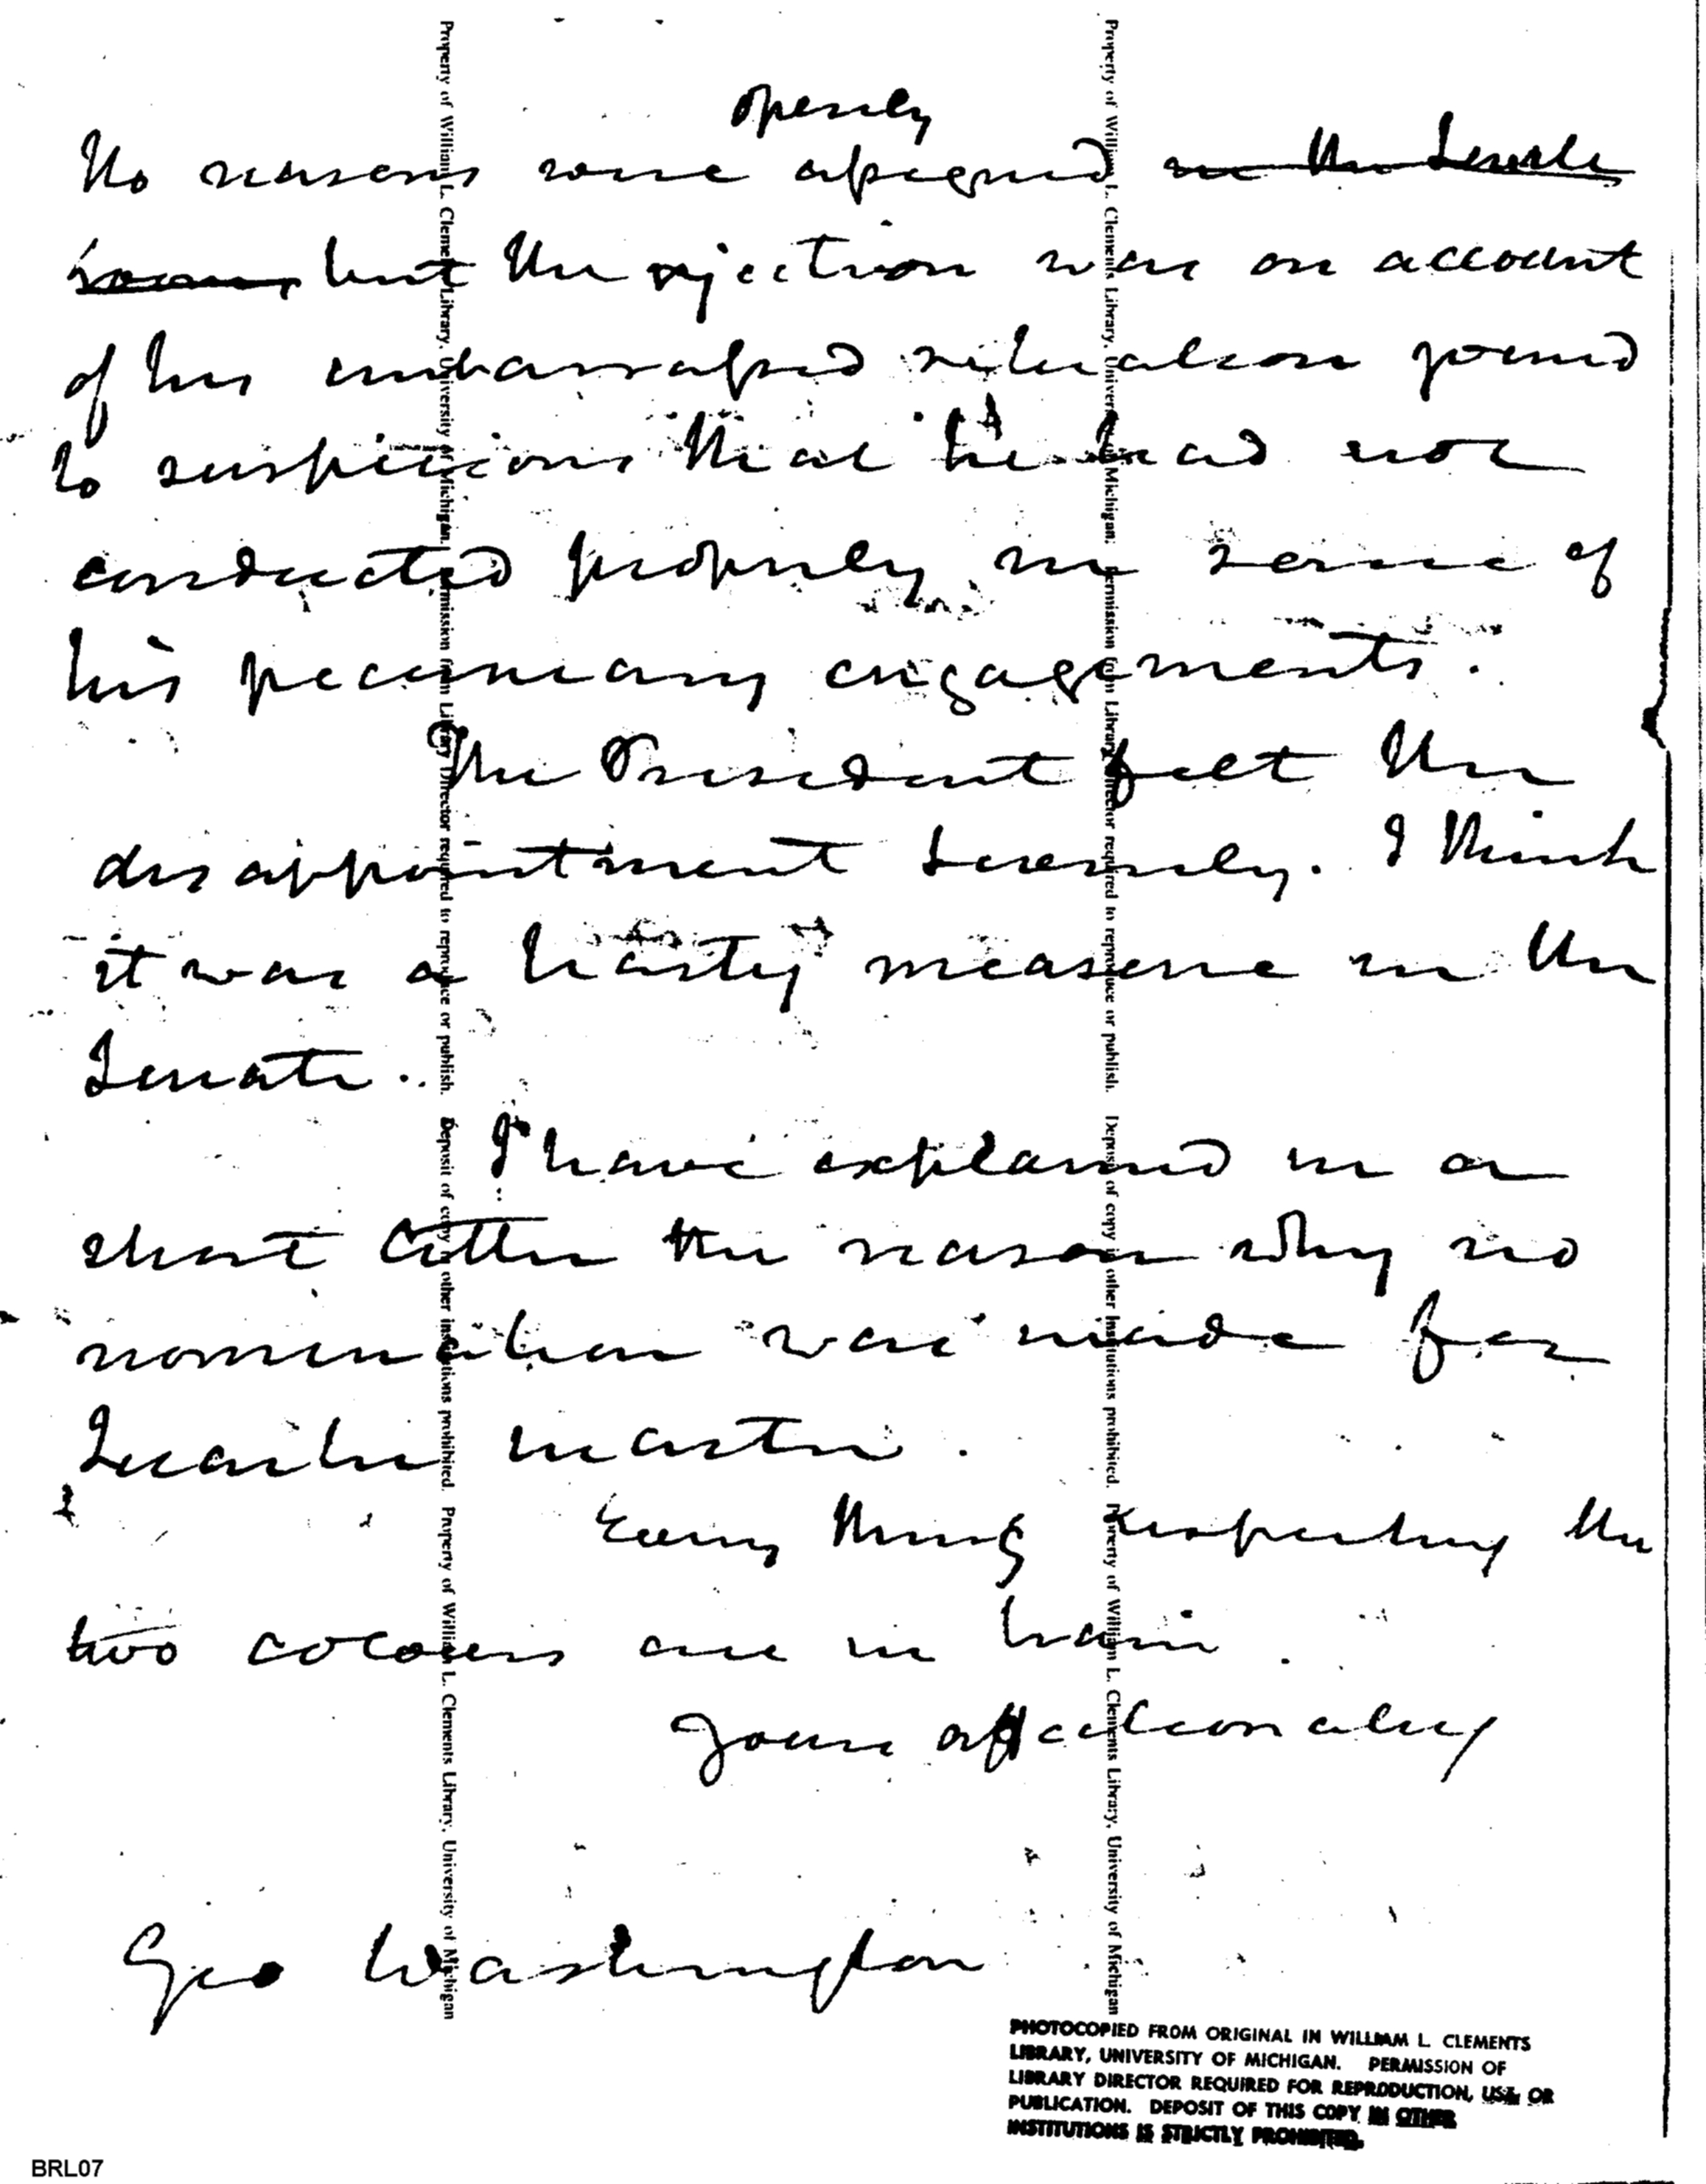 openly
No reasons were assigned in the Senate
room, but the rejection was on account
of his embarrassed situation joined
to suspicions that he had not
conducted properly in some of
his pecuniary engagements.
The President felt the
disappointment severely. I think
it was a hasty measure in the
Senate.
I have explained in a
short letter the reason why no
nomination was made for
Quarter master.
Every thing respecting the
two colours are in train.
Yours affectionately
Geo Washington
Property of William L. Clements Library, University of Michigan. Permission from Library Director required to reproduce or publish. Deposit of copy in other institutions prohibited. Property of William L. Clements Library, University of Michigan
Property of William L. Clements Library, University of Michigan. Permission from Library Director required to reproduce or publish. Deposit of copy in other institutions prohibited. Property of William L. Clements Library, University of Michigan
PHOTOCOPIED FROM ORIGINAL IN WILLIAM L. CLEMENTS
LIBRARY, UNIVERSITY OF MICHIGAN. PERMISSION OF
LIBRARY DIRECTOR REQUIRED FOR REPRODUCTION, USE, OR
PUBLICATION. DEPOSIT OF THIS COPY IN OTHER
INSTITUTIONS IS STRICTLY PROHIBITED.
BRL07